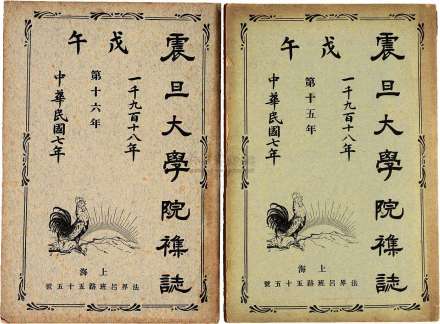 震旦大學院雜誌
戊午
一千九百十八年
第十六年
中華民國七年
上海
法界呂班路五十五號
震旦大學院雜誌
戊午
一千九百十八年
第十五年
中華民國七年
上海
法界呂班路五十五號